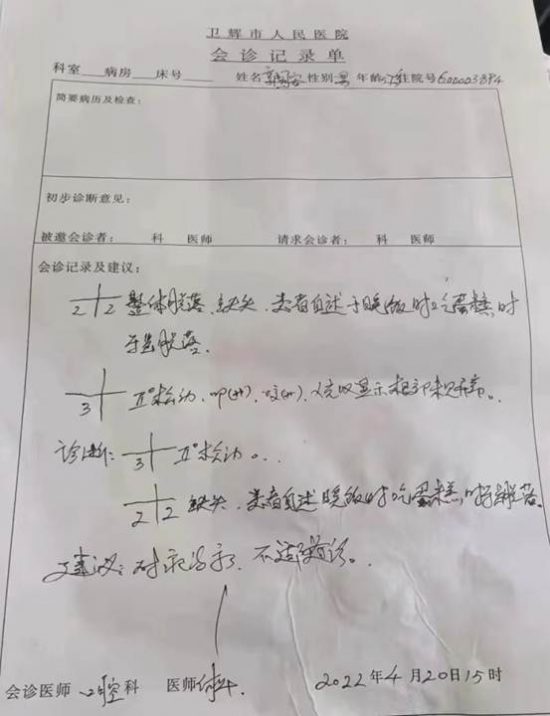 卫辉市人民医院
会诊记录单
科室 病房 床号 姓名 性别男 年龄 住院号602003894
简要病历及检查:
初步诊断意见:
被邀会诊者: 科 医师 请求会诊者: 科 医师
会诊记录及建议:
2 2 整体脱落、缺失、患者自述于晚饭时吃蛋糕时
脱落.
3 II°松动, 叩(+), X光片显示根部未见异常.
诊断: 3 II°松动.
2 2 缺失、患者自述晚饭时吃蛋糕时脱落.
建议: 对症治疗, 不适随诊.
会诊医师 口腔科 医师 2022年4月20日15时